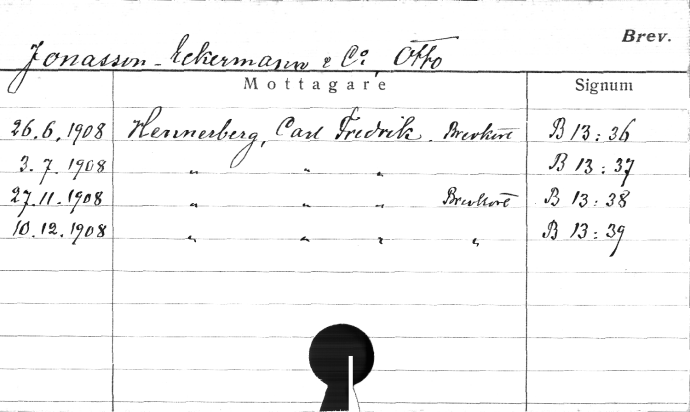 Brev.
Jonasson-Eckermann & Co, Otto
Mottagare Signum
26.6.1908 Hennerberg, Carl Fredrik. Brevkort B 13:36
3.7.1908 " " " B 13:37
27.11.1908 " " " Brevkort B 13:38
10.12.1908 " " " " B 13:39